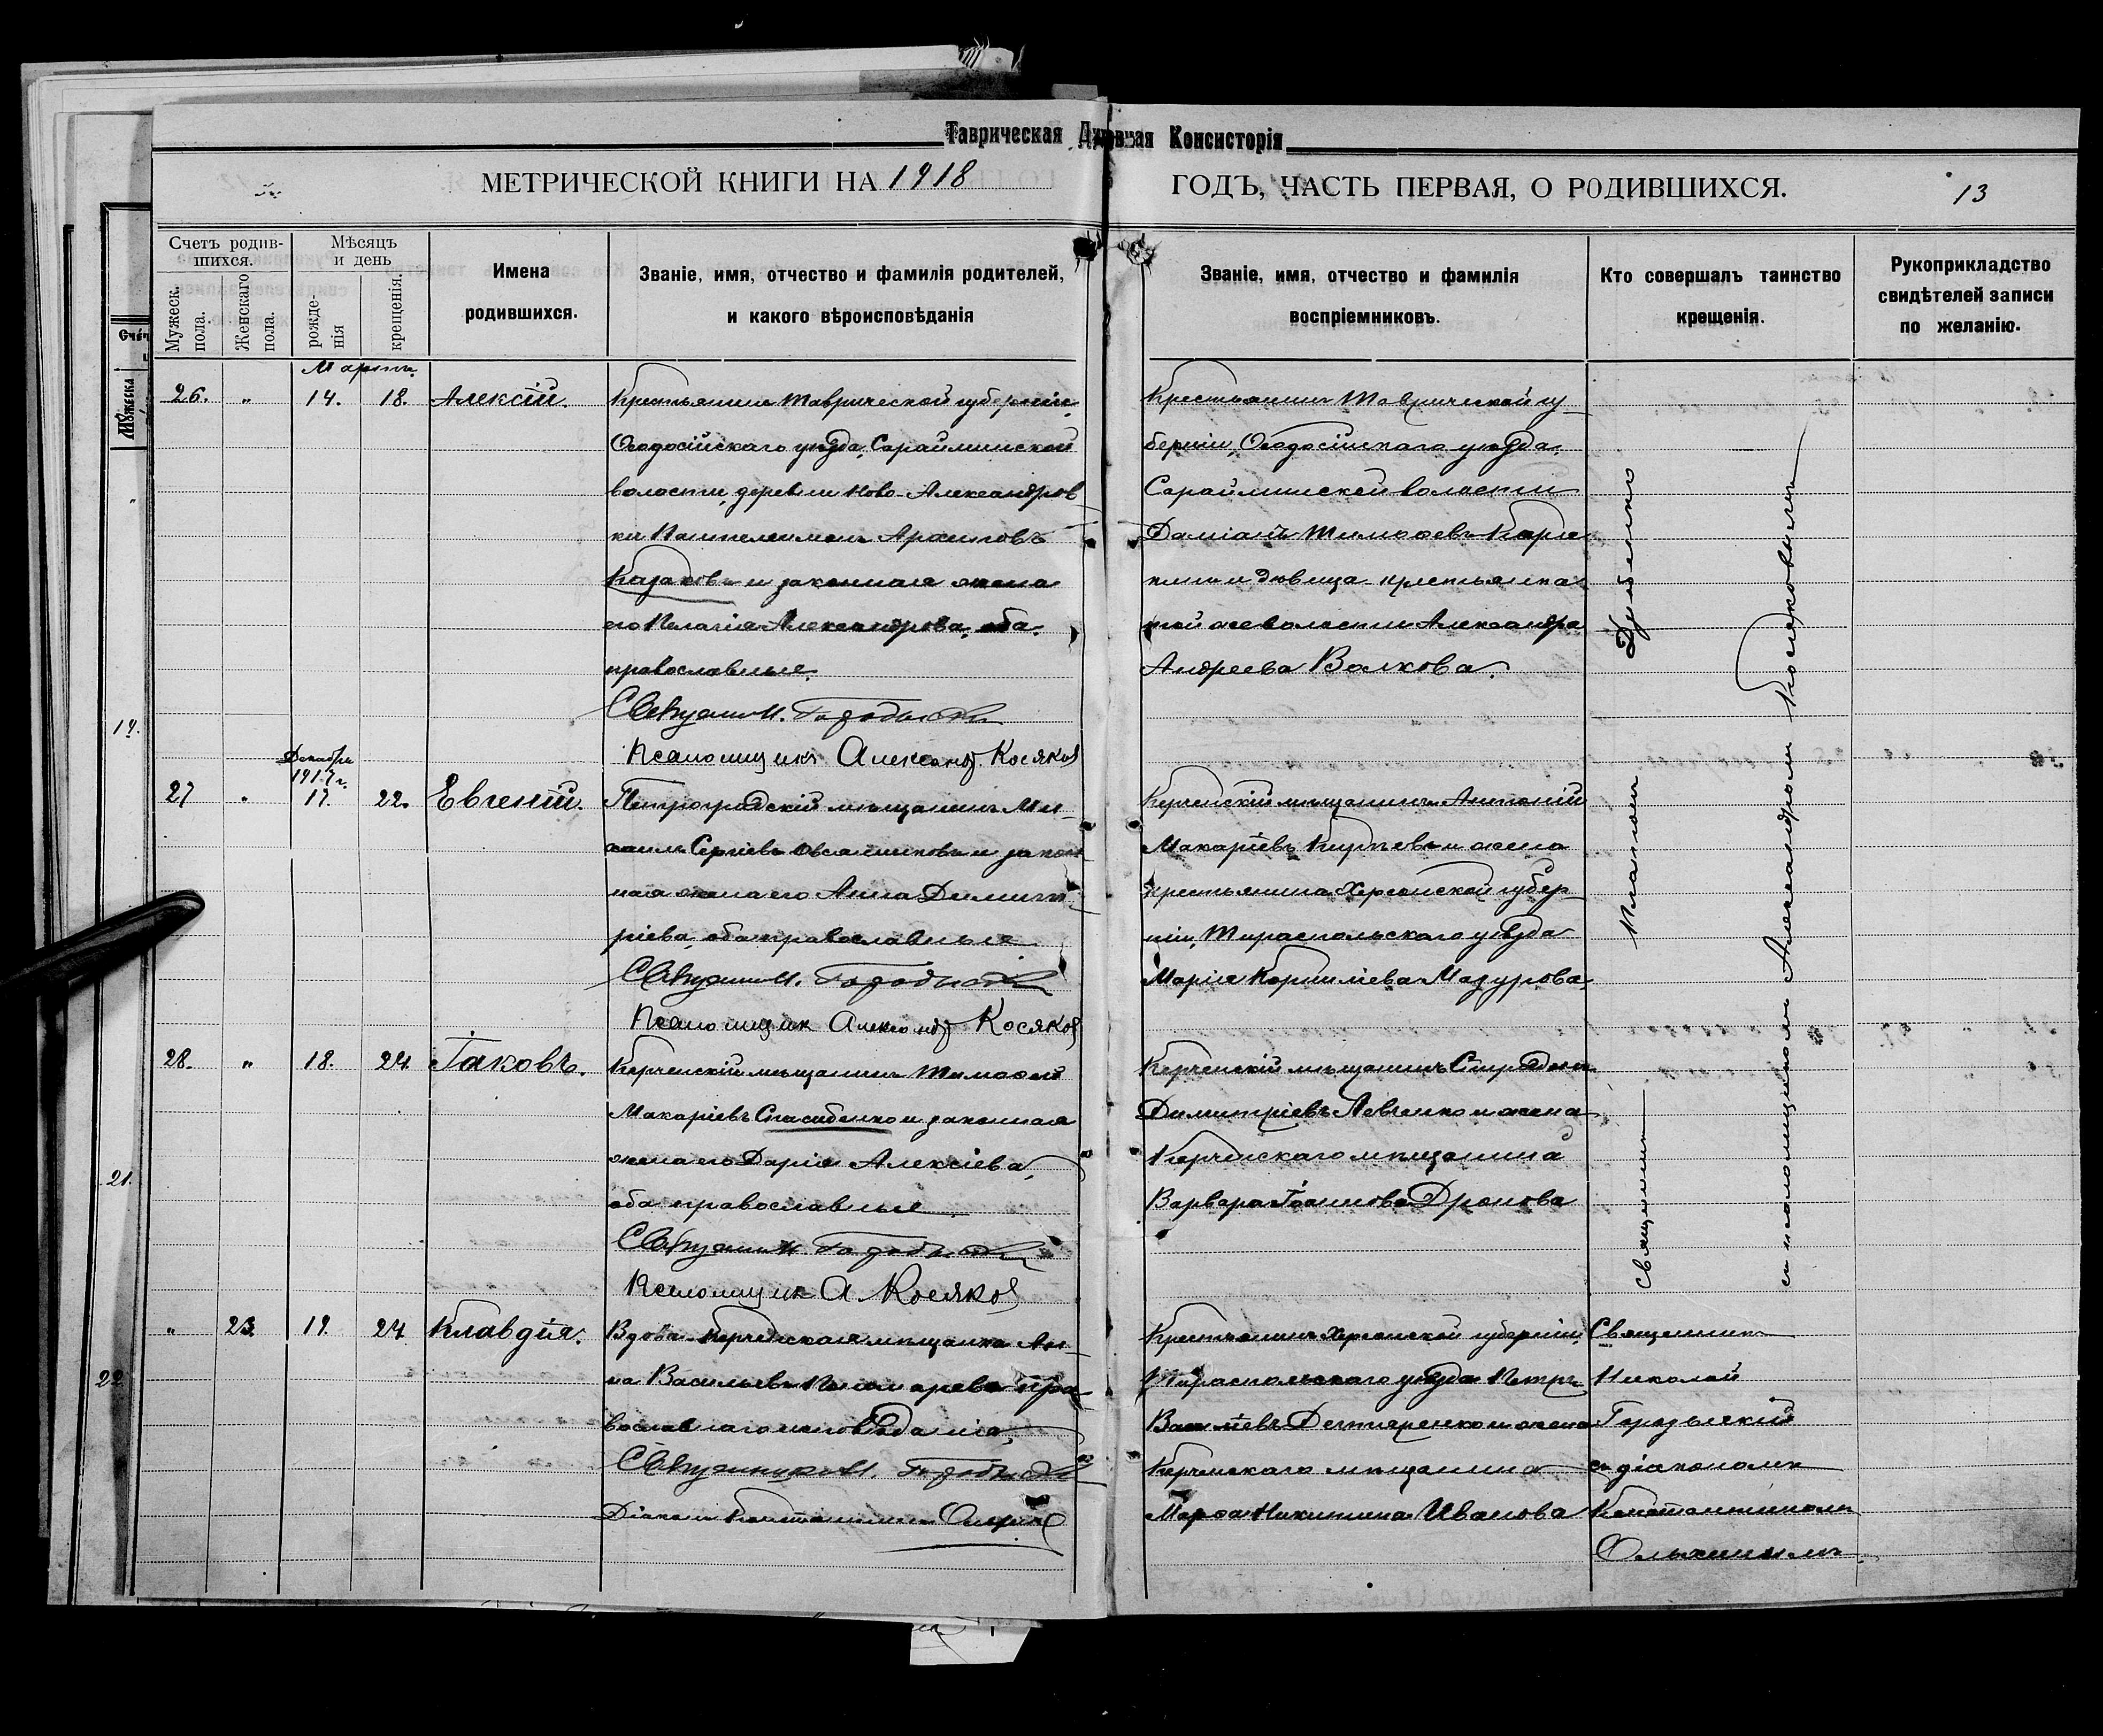 Таврическая Духовная Консисторія
МЕТРИЧЕСКОЙ КНИГИ НА 1918 ГОДЪ, ЧАСТЬ ПЕРВАЯ, О РОДИВШИХСЯ.
13
Счетъ родив-
шихся.
Мужеск.
пола.
Женскаго
пола.
Мѣсяцъ
и день
рожде-
нія
крещенія.
Имена
родившихся.
Званіе, имя, отчество и фамилія родителей,
и какого вѣроисповѣданія
Званіе, имя, отчество и фамилія
воспріемниковъ.
Кто совершалъ таинство
крещенія.
Рукоприкладство
свидѣтелей записи
по желанію.
Мартъ
26. " 14. 18. Алексій.
Крестьянинъ Таврической губерніи,
Ѳеодосійскаго уѣзда, Сарайминской
волости, деревни Ново-Александров
ки Пантелеимонъ Архиповъ
Казаковъ и законная жена
его Пелагія Александрова, оба
православные.
Священник Н. Городыскій
Псаломщикъ Александ. Косяков
Крестьянинъ Таврической гу_
берніи, Ѳеодосійскаго уѣзда
Сарайминской волости
Даміанъ Тимоѳеевъ
и дѣвица крестьянка
той же волости Александра
Андреева Волкова.
Декабрь
1917 г.
27 " 17. 22. Евгеній.
Петроградскій мѣщанинъ Ми_
хаилъ Сергіевъ Овсянниковъ и закон
ная жена его Анна Димит_
ріева, оба православные
Священник Н. Городыскій
Псаломщик Александ Косяков
Керченскій мѣщанинъ Антоній
Макаріевъ и жена
крестьянина Херсонской губер_
ніи, Тираспольскаго уѣзда
Марія Корниліева Мазурова.
28. " 18. 24 Іаковъ.
Керченскій мѣщанинъ Тимоѳей
Макаріевъ Спасибенко и законная
жена его Дарія Алексіева,
оба православные
Священник Н. Городыскій
Псаломщик А Косяков
Керченскій мѣщанинъ Спиридонъ
Димитріевъ Левченко и жена
Керченскаго мѣщанина
Варвара Іоаннова Дронова
Священникъ Платонъ Дубенко
съ псаломщикомъ Александромъ Косяковымъ
" 23. 19. 24 Клавдія.
Вдова Керченская мѣщанка Ан_
на Васильева Пономарева пра_
вославнаго исповѣданія,
Священник Н. Городыскій
Діаконъ Константинъ
Крестьянинъ Херсонской губерніи,
Тираспольскаго уѣзда Петръ
Дегтяренко и жена
Керченскаго мѣщанина
Марѳа Никитина Иванова
Священникъ
Николай
Городыскій
съ діакономъ
Константиномъ
Ольхинымъ
19.
21.
22